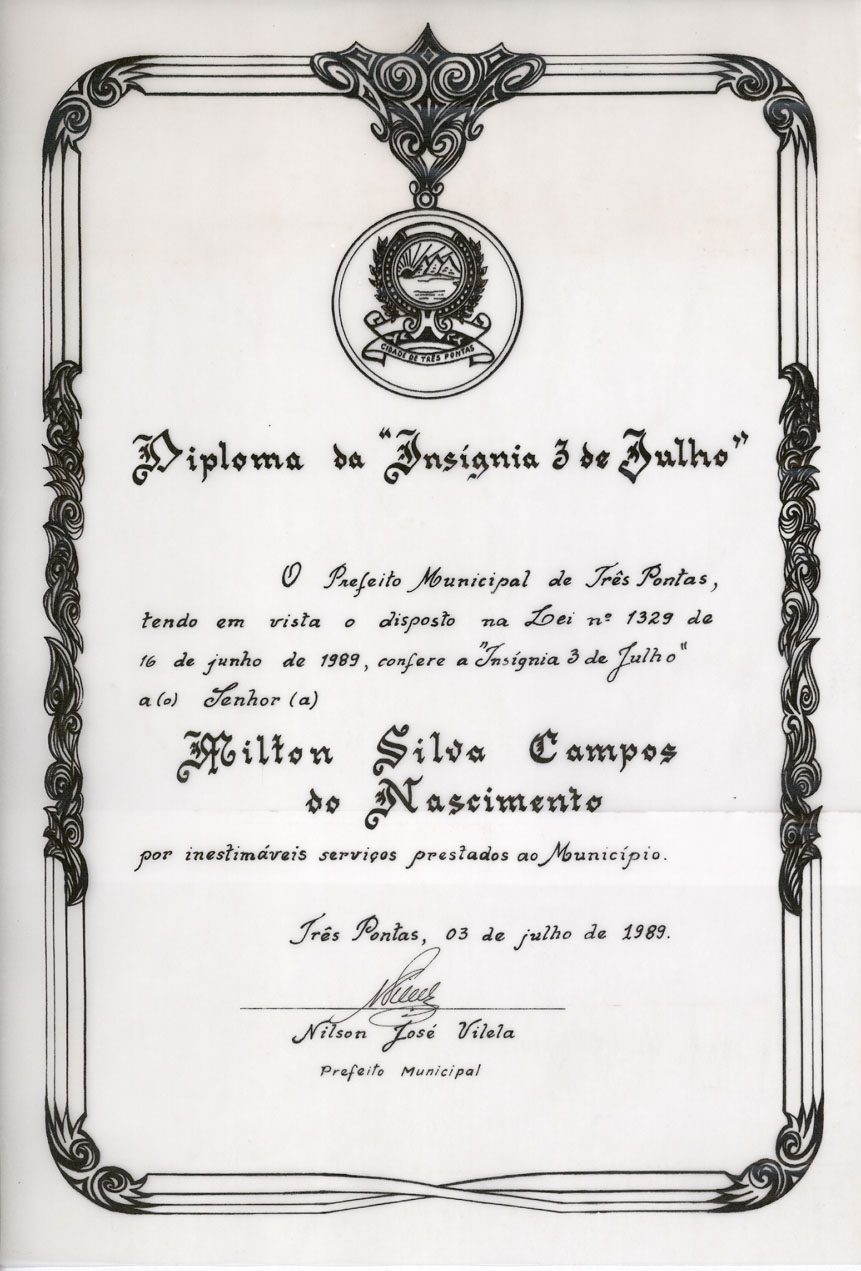 CIDADE DE TRÊS PONTAS
Diploma da "Insígnia 3 de Julho"
O Prefeito Municipal de Três Pontas,
tendo em vista o disposto na Lei nº 1329 de
16 de junho de 1989, confere a "Insígnia 3 de Julho"
a(o) Senhor (a)
Milton Silva Campos
do Nascimento
por inestimáveis serviços prestados ao Município.
Três Pontas, 03 de julho de 1989.
Nilson José Vilela
Prefeito Municipal